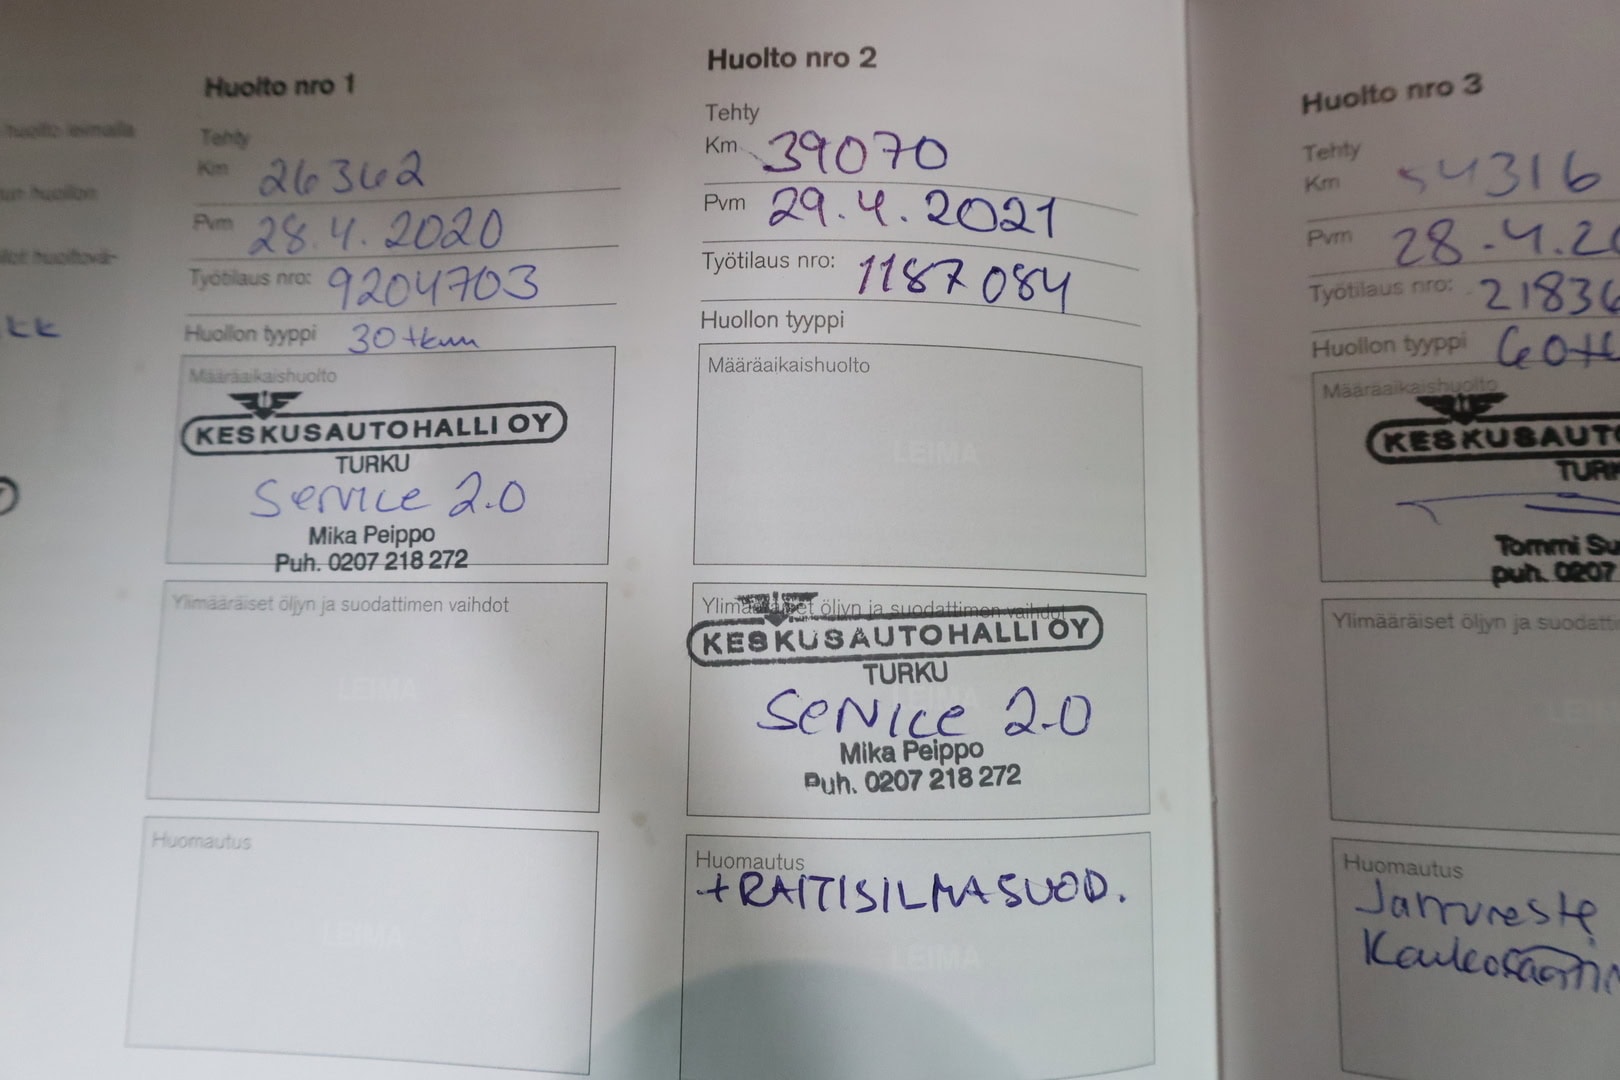 huolto leimalla
un huollon
llot huoltovä-
kk
Huolto nro 1
Tehty
Km 26362
Pvm 28.4.2020
Työtilaus nro: 9204703
Huollon tyyppi 30 tkm
Määräaikaishuolto
KESKUSAUTOHALLI OY
TURKU
Service 2.0
Mika Peippo
Puh. 0207 218 272
Ylimääräiset öljyn ja suodattimen vaihdot
LEIMA
Huomautus
LEIMA
Huolto nro 2
Tehty
Km 39070
Pvm 29.4.2021
Työtilaus nro: 1187084
Huollon tyyppi
Määräaikaishuolto
LEIMA
Ylimääräiset öljyn ja suodattimen vaihdot
KESKUSAUTOHALLI OY
TURKU
Service 2.0
Mika Peippo
Puh. 0207 218 272
Huomautus
+RAITISILMASUOD.
LEIMA
Huolto nro 3
Tehty
Km 54316
Pvm 28.4.20
Työtilaus nro: 21836
Huollon tyyppi 60 t
Määräaikaishuolto
KESKUSAUTO
TURK
Tommi Su
puh. 0207
Ylimääräiset öljyn ja suodatti
LEI
Huomautus
Jarruneste